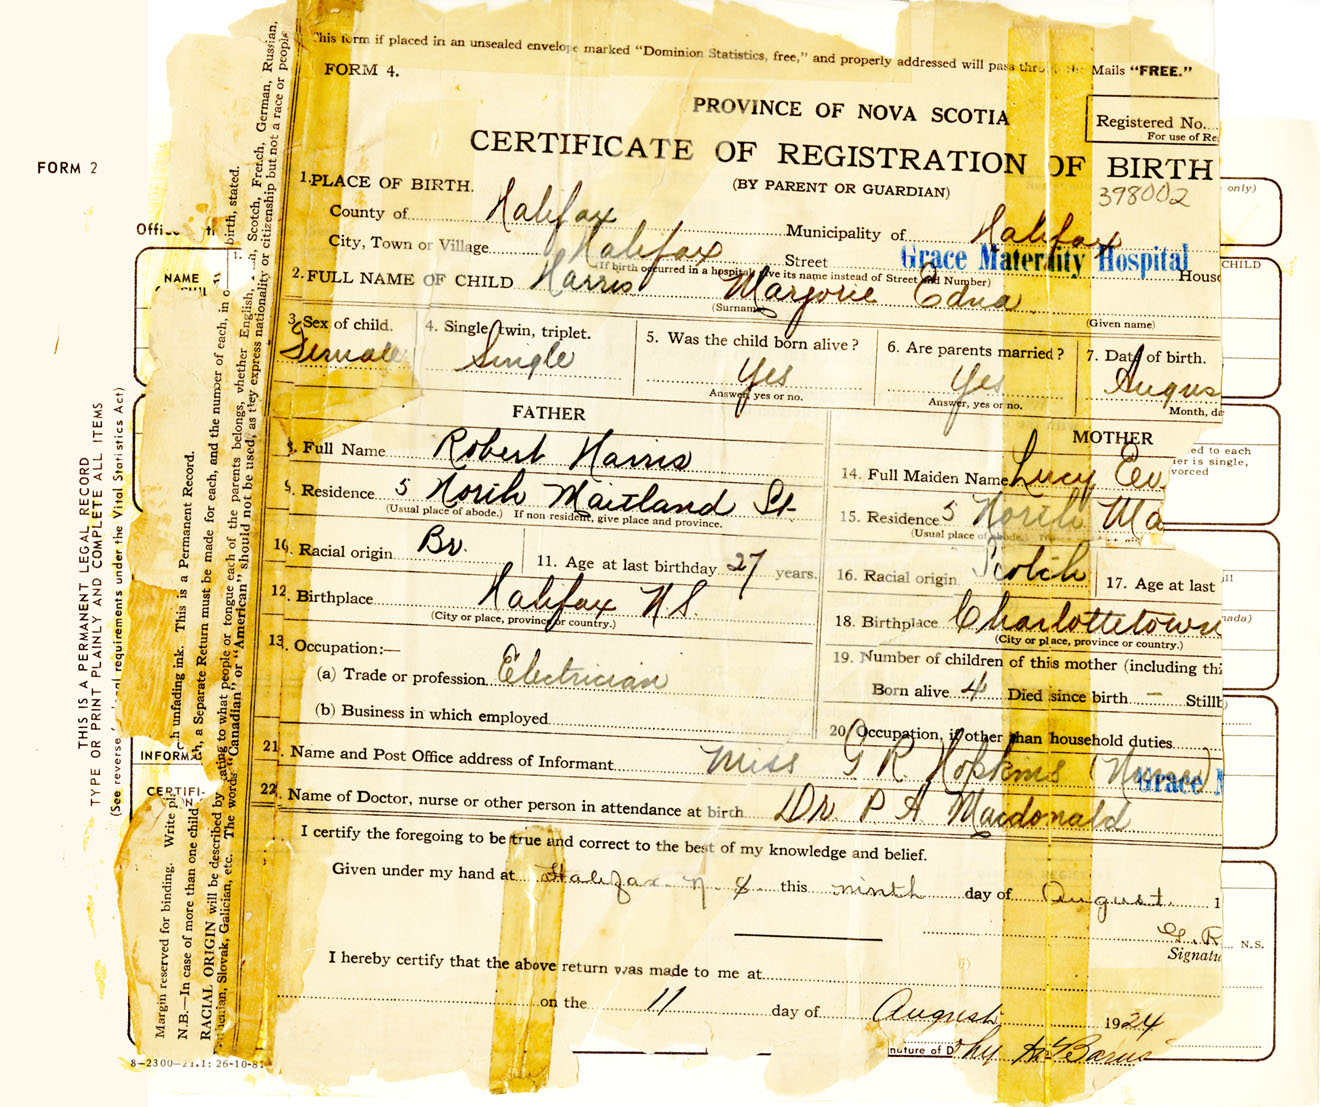 This form if placed in an unsealed envelope marked "Dominion Statistics, free," and properly addressed will pass through the Mails "FREE."
FORM 4.
PROVINCE OF NOVA SCOTIA
Registered No.
For use of Re
CERTIFICATE OF REGISTRATION OF BIRTH
(BY PARENT OR GUARDIAN)
398002
only)
1. PLACE OF BIRTH.
County of Halifax Municipality of Halifax
City, Town or Village Halifax Street Grace Maternity Hospital
(If birth occurred in a hospital give its name instead of Street and Number) House
2. FULL NAME OF CHILD Harris Marjorie Edna
(Surname) (Given name)
3. Sex of child. Female
4. Single, twin, triplet. Single
5. Was the child born alive? Yes
Answer, yes or no.
6. Are parents married? Yes
Answer, yes or no.
7. Date of birth. Augus
Month, da
FATHER
8. Full Name Robert Harris
9. Residence 5 North Maitland St.
(Usual place of abode.) If non resident, give place and province.
10. Racial origin Br. 11. Age at last birthday 27 years.
12. Birthplace Halifax N.S.
(City or place, province or country.)
13. Occupation:—
(a) Trade or profession Electrician
(b) Business in which employed
MOTHER
14. Full Maiden Name Lucy
15. Residence 5 North Ma
(Usual place of abode.)
16. Racial origin Scotch 17. Age at last
18. Birthplace Charlottetown
(City or place, province or country.)
19. Number of children of this mother (including thi
Born alive 4 Died since birth – Stillb
20. Occupation, if other than household duties
21. Name and Post Office address of Informant Miss G R Hopkins (Nurse) Grace M
22. Name of Doctor, nurse or other person in attendance at birth Dr P A Macdonald
I certify the foregoing to be true and correct to the best of my knowledge and belief.
Given under my hand at Halifax N S this ninth day of August 1
G. R
Signatu
N.S.
I hereby certify that the above return was made to me at
on the 11 day of August 1924
nature of D
FORM 2
THIS IS A PERMANENT LEGAL RECORD
TYPE OR PRINT PLAINLY AND COMPLETE ALL ITEMS
(See reverse for legal requirements under the Vital Statistics Act)
NAME
CHILD
INFORMA
CERTIFI-
Margin reserved for binding. Write pl
ch unfading ink. This is a Permanent Record.
N.B.—In case of more than one child
h, a Separate Return must be made for each, and the number of each, in o
birth, stated.
RACIAL ORIGIN will be described by
ating to what people or tongue each of the parents belongs, whether English,
Scotch, French, German, Russian,
Slovak, Galician, etc. The words "Canadian" or "American" should not be used, as they express nationality or citizenship but not a race or people
8-2300-21.1: 26-10-81
ed to each
er is single,
vorced
nada)